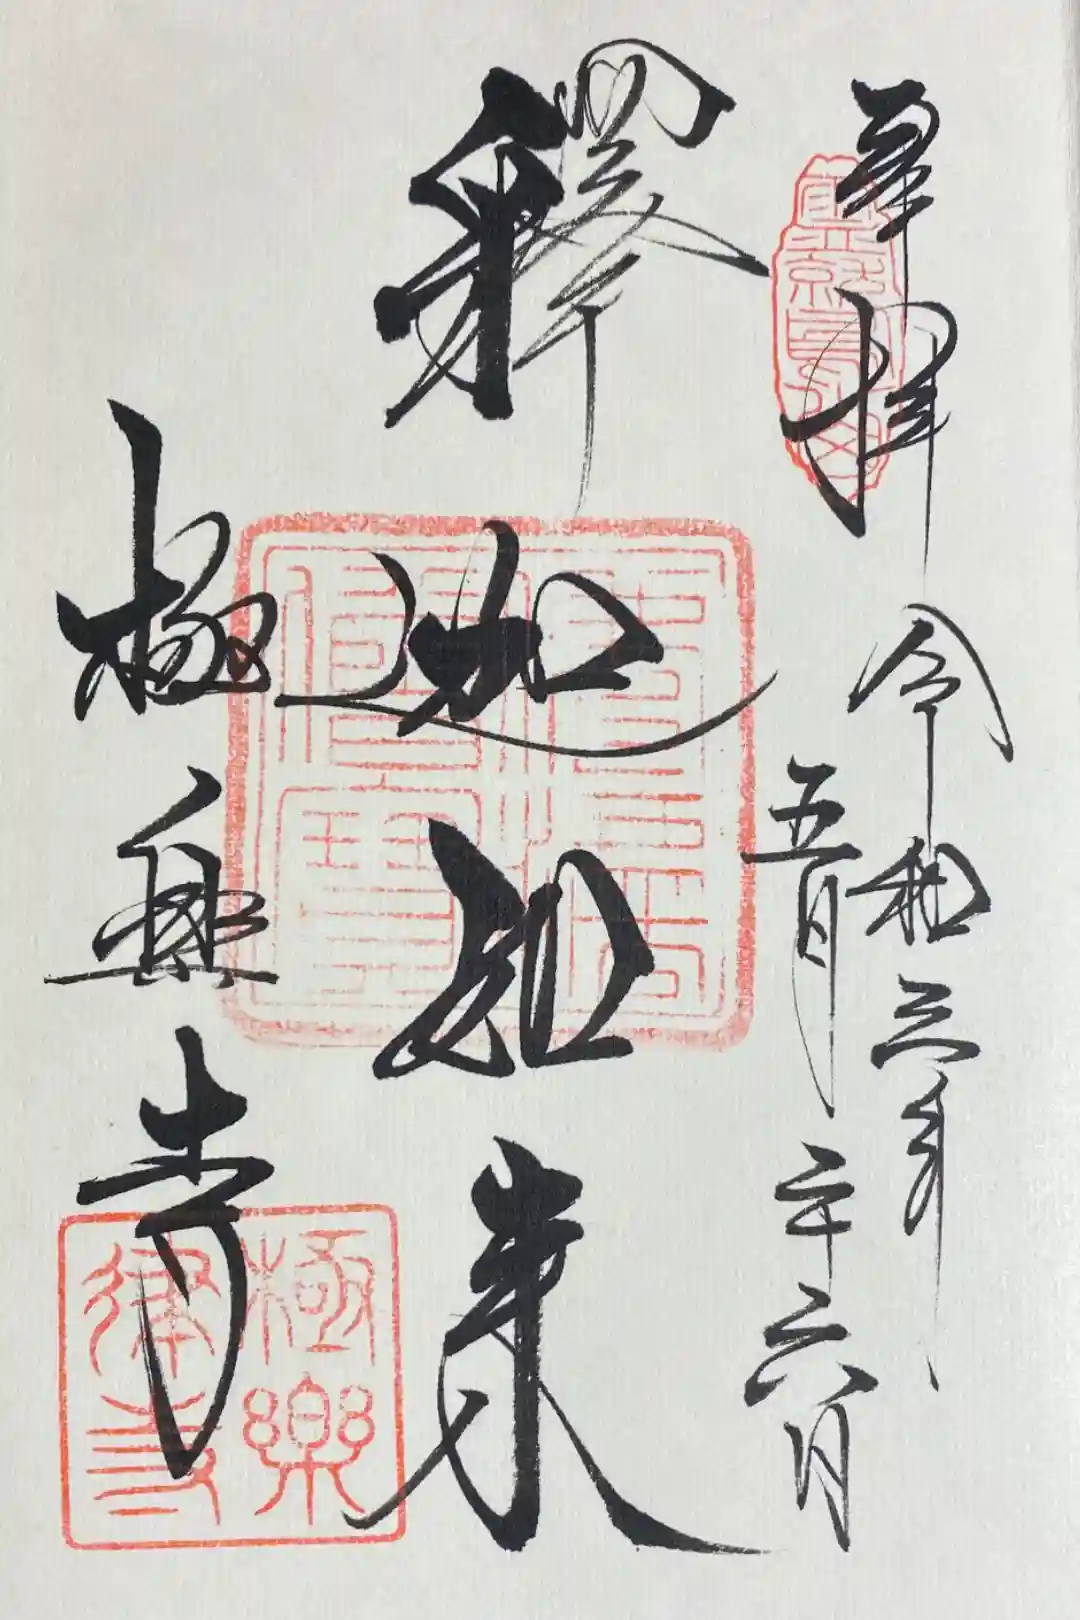 奉拝 令和三年
五月二十六日
釋迦如来
極樂寺
極樂
律寺